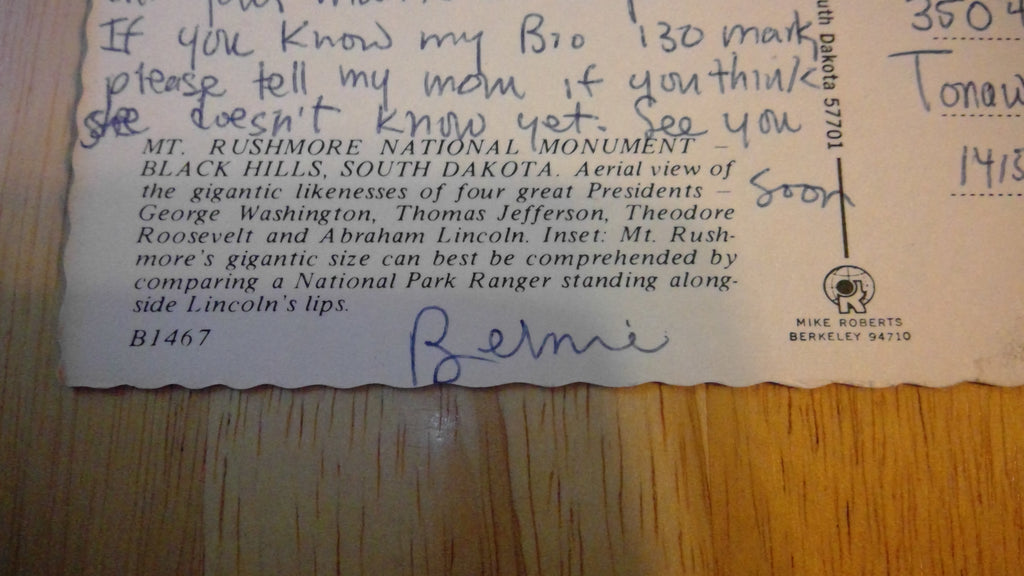 If you know my Bio 130 mark,
please tell my mom if you think
she doesn't know yet. See you
soon
MT. RUSHMORE NATIONAL MONUMENT –
BLACK HILLS, SOUTH DAKOTA. Aerial view of
the gigantic likenesses of four great Presidents –
George Washington, Thomas Jefferson, Theodore
Roosevelt and Abraham Lincoln. Inset: Mt. Rush-
more's gigantic size can best be comprehended by
comparing a National Park Ranger standing along-
side Lincoln's lips.
B1467
Bernie
uth Dakota 57701
R
MIKE ROBERTS
BERKELEY 94710
350
Tonaw
1415